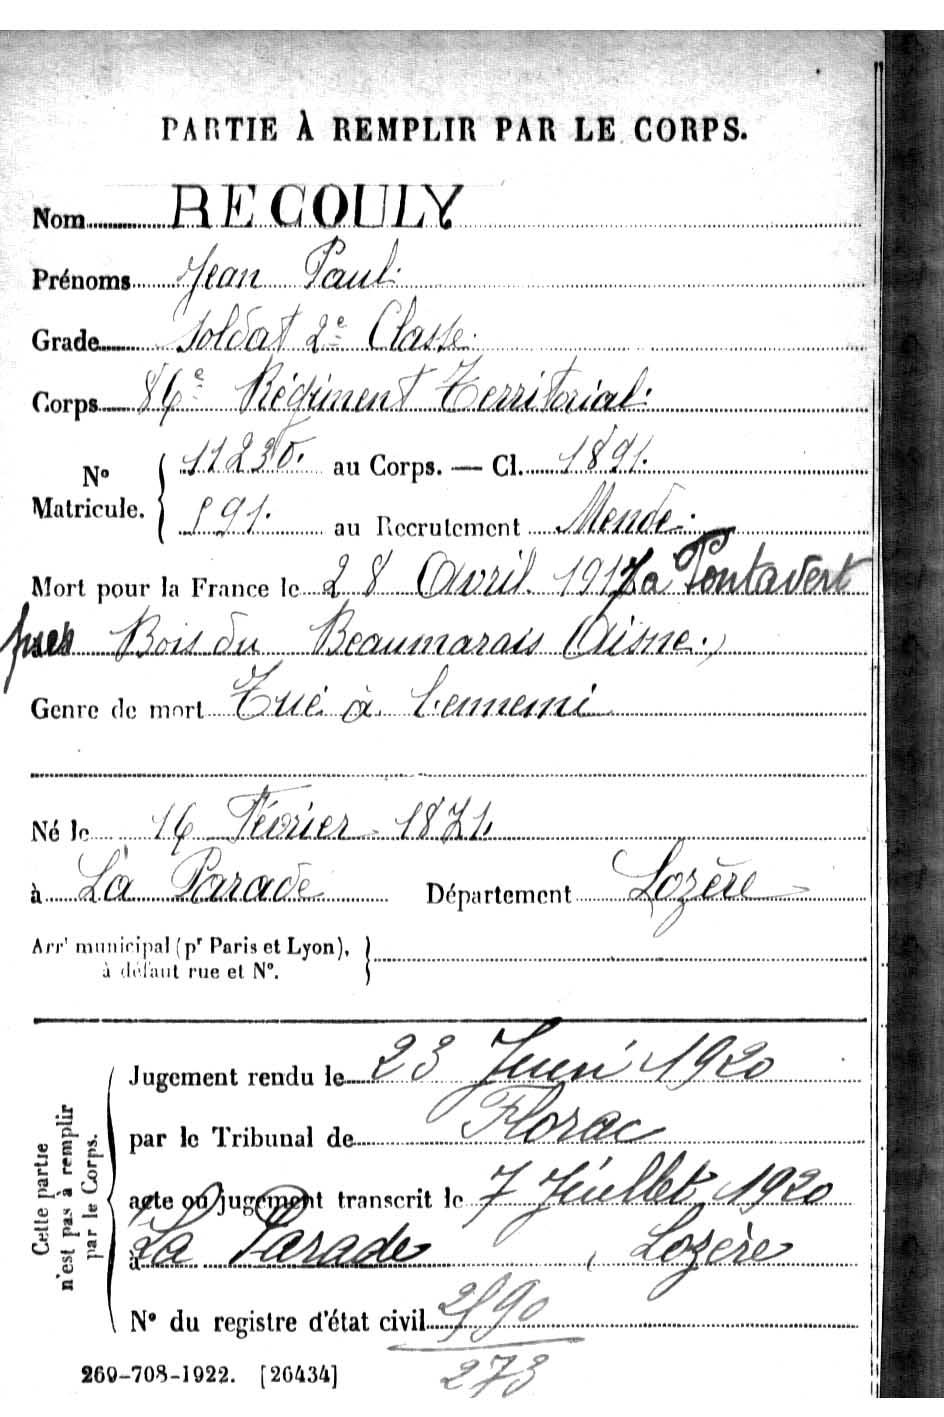 PARTIE À REMPLIR PAR LE CORPS.
Nom RECOULY
Prénoms Jean Paul.
Grade Soldat 2e Classe.
Corps 86e Régiment Territorial.
No Matricule. { 11230. au Corps. — Cl. 1891.
991. au Recrutement Mende.
Mort pour la France le 28 Avril 1917 a Pontavert
près Bois du Beaumarais (Aisne.)
Genre de mort Tué à l'ennemi
Né le 16 Février 1871.
à La Parade Département Lozère
Arrt municipal (pr Paris et Lyon), }
à défaut rue et No.
Cette partie n'est pas à remplir par le Corps.
Jugement rendu le 23 Juin 1920
par le Tribunal de Florac
acte ou jugement transcrit le 7 Juillet 1920
à La Parade, Lozère
No du registre d'état civil
273
269-708-1922. [26434]